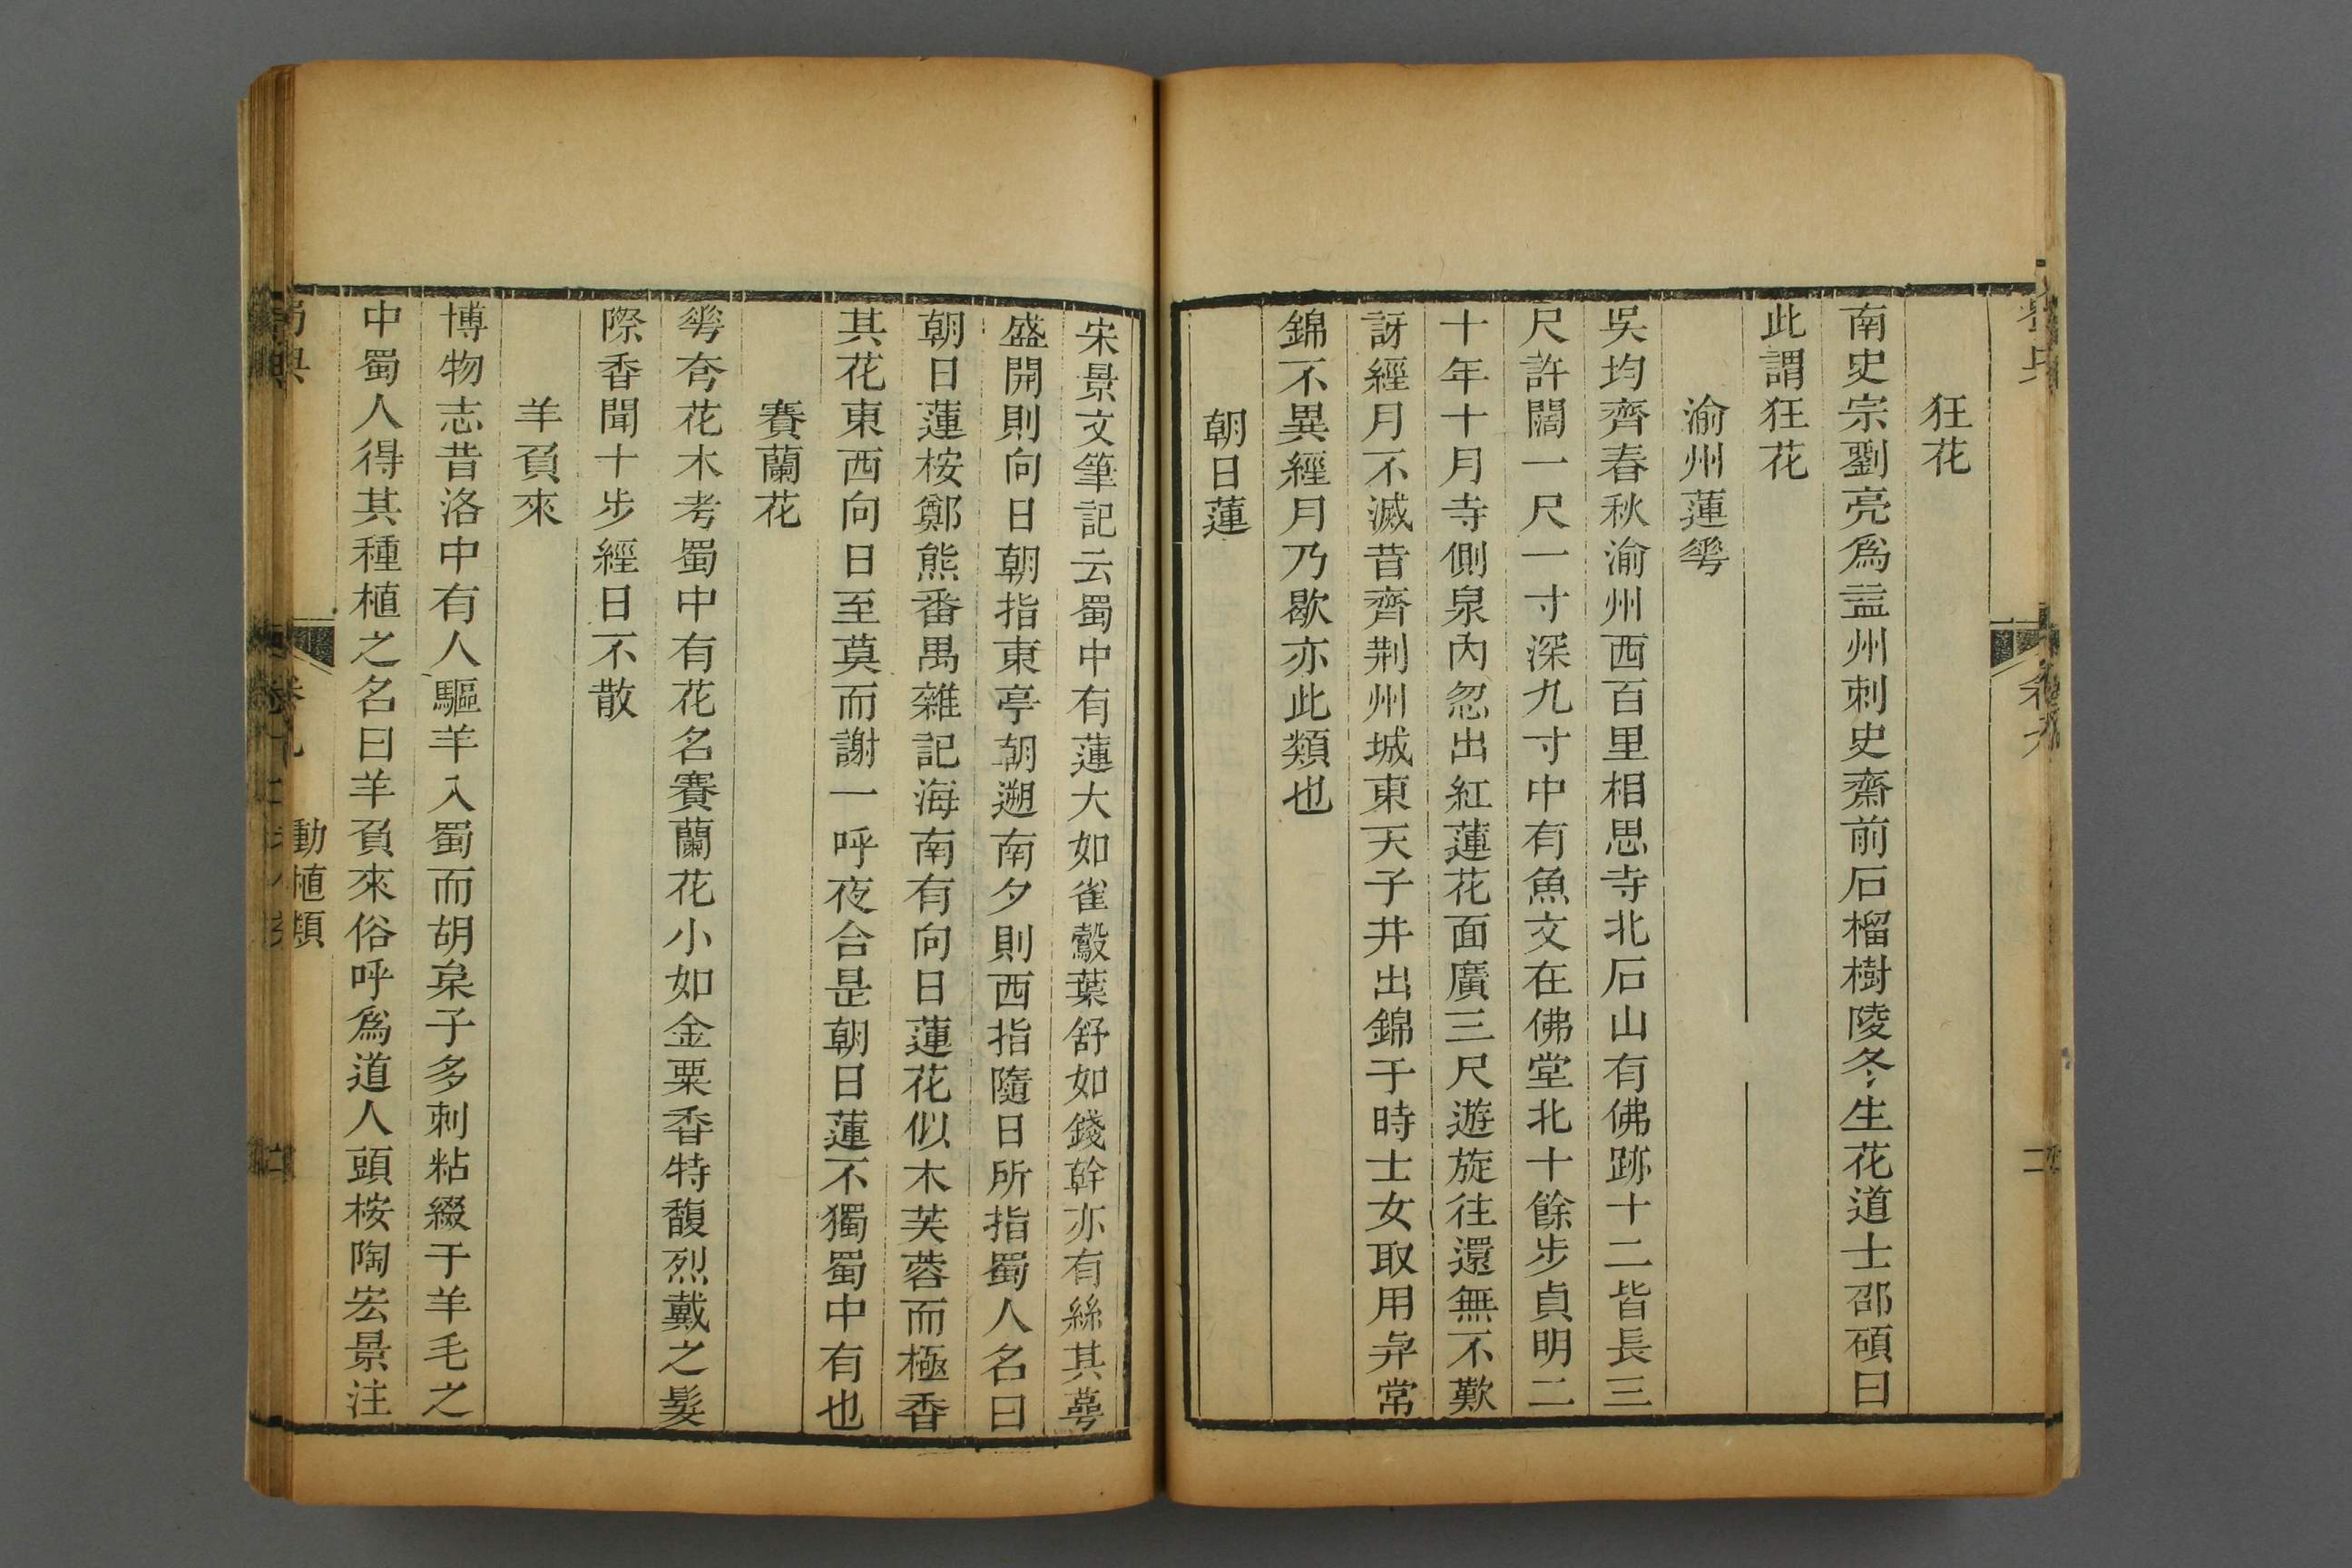 狂花
南史宗劉亮爲益州刺史齋前石榴樹陵冬生花道士邵碩曰
此謂狂花
渝州蓮㛟
吳均齊春秋渝州西百里相思寺北石山有佛跡十二皆長三
尺許闊一尺一寸深九寸中有魚文在佛堂北十餘步貞明二
十年十月寺側泉內忽出紅蓮花面廣三尺遊旋往還無不歎
訝經月不滅昔齊荆州城東天子井出錦于時士女取用异常
錦不異經月乃歇亦此類也
朝日蓮
宋景文筆記云蜀中有蓮大如雀鷇葉舒如錢幹亦有絲其蕚
盛開則向日朝指東亭朝遡南夕則西指隨日所指蜀人名曰
朝日蓮桉鄭熊番禺雜記海南有向日蓮花似木芙蓉而極香
其花東西向日至莫而謝一呼夜合是朝日蓮不獨蜀中有也
賽蘭花
花木考蜀中有花名賽蘭花小如金粟香特馥烈戴之髮
際香聞十步經日不散
羊負來
博物志昔洛中有人驅羊入蜀而胡枲子多刺粘綴于羊毛之
中蜀人得其種植之名曰羊負來俗呼爲道人頭桉陶宏景注
卷九
動植類